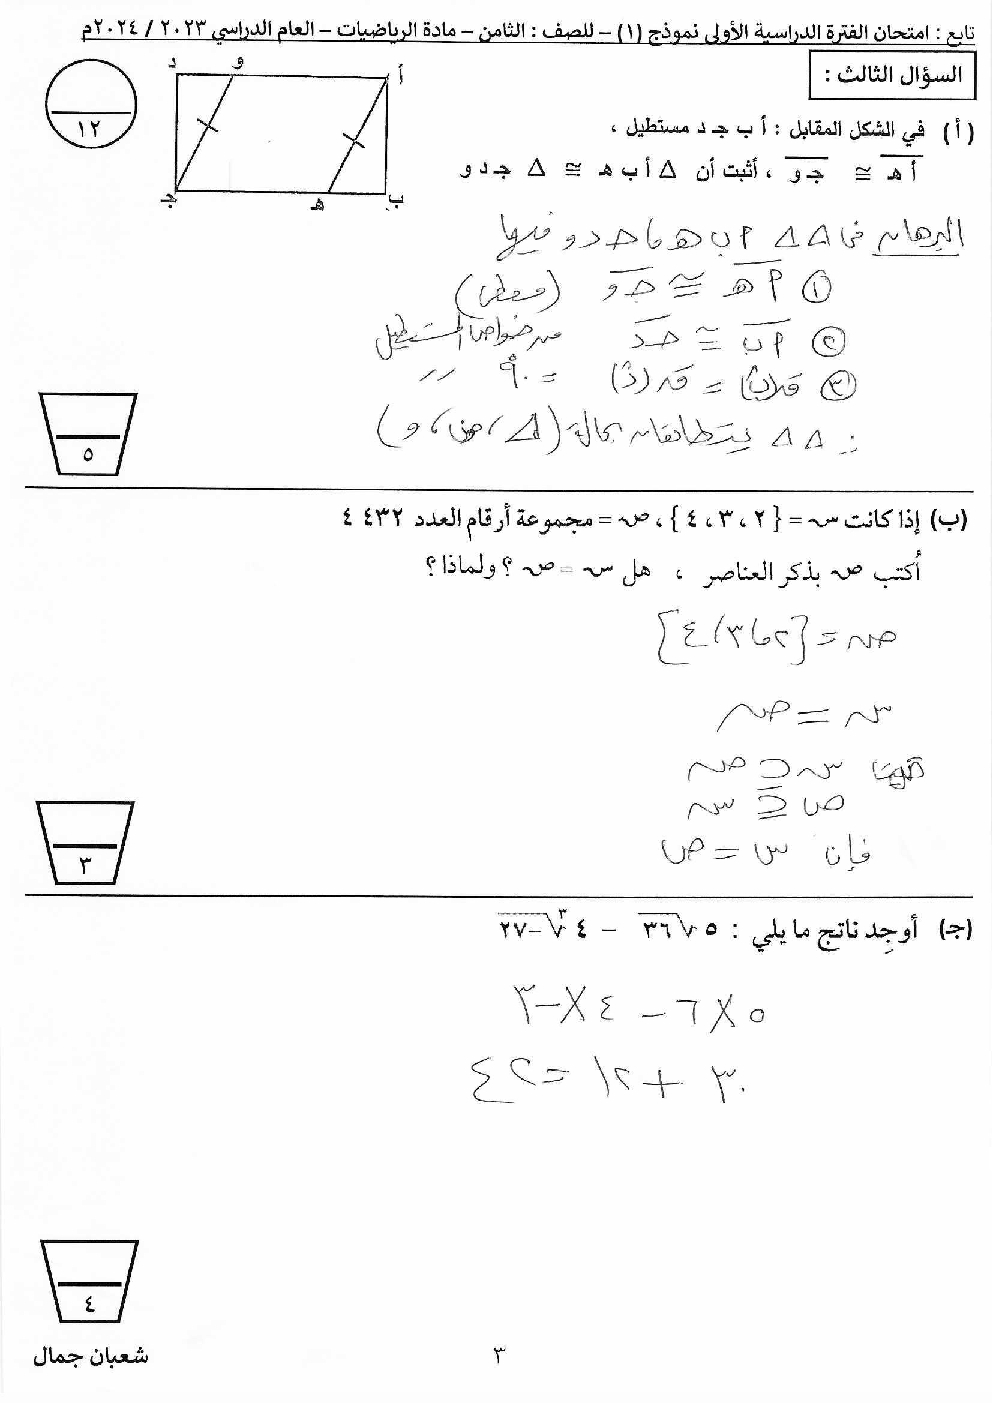 تابع : امتحان الفترة الدراسية الأولى نموذج (١) – للصف : الثامن – مادة الرياضيات – العام الدراسي ٢٠٢٣ / ٢٠٢٤م
السؤال الثالث :
١٢
د و أ
جـ هـ ب
(أ) في الشكل المقابل : أ ب جـ د مستطيل ،
أهـ ≅ جـو ، أثبت أن △ أ ب هـ ≅ △ جـ د و
البرهان في △△ أ ب هـ ، جـ د و فيها
① أهـ ≅ جـو (معطى)
② أب ≅ جـد من خواص المستطيل
③ ق(ب) = ق(د) = ٩٠° //
∴ △△ يتطابقان بحالة (△، ض، و)
٥
(ب) إذا كانت س = {٢ ، ٣ ، ٤} ، ص = مجموعة أرقام العدد ٤٤٣٢
أكتب ص بذكر العناصر ، هل س = ص ؟ ولماذا ؟
ص = {٢، ٣، ٤}
س = ص
س ⊆ ص
ص ⊆ س
فإن س = ص
٣
(جـ) أوجِد ناتج ما يلي : ٥ √٣٦ – ٤ ∛-٢٧
٥ × ٦ – ٤ × -٣
٣٠ + ١٢ = ٤٢
٤
٣
شعبان جمال